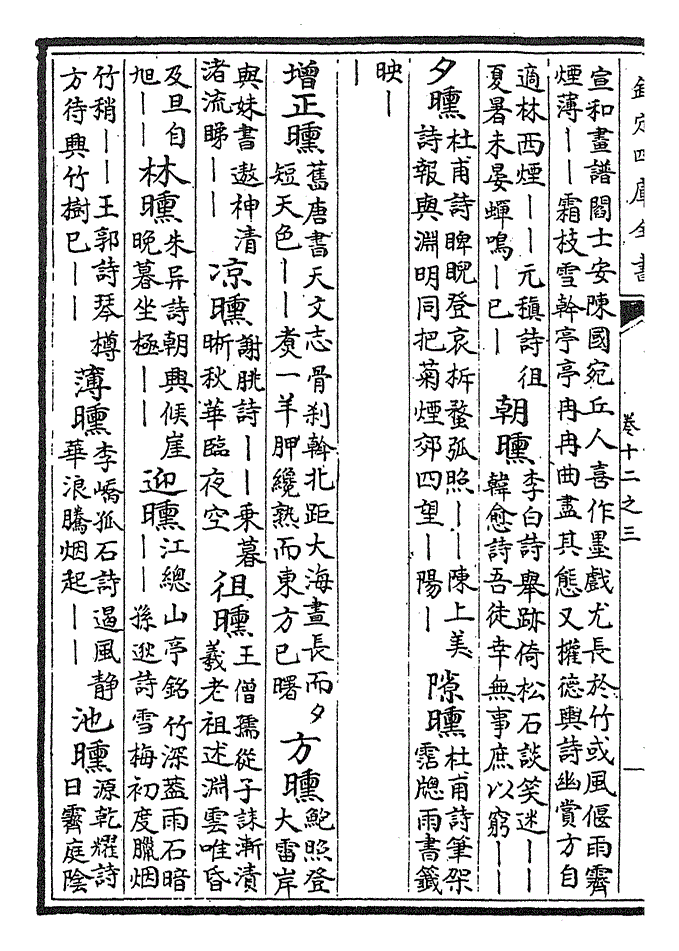 欽定四庫全書
卷十二之三
宣和畫譜閻士安陳國宛丘人喜作墨戲尤長於竹或風偃雨霽
煙薄丨丨霜枝雪幹亭亭冉冉曲盡其態又權德輿詩幽賞方自
適林西煙丨丨元稹詩徂
夏暑未晏蟬鳴丨已丨
朝曛
李白詩舉跡倚松石談笑迷丨丨
韓愈詩吾徒幸無事庶以窮丨丨
夕曛
杜甫詩睥睨登哀柝蝥弧照丨丨陳上美
詩報與淵明同把菊煙郊四望丨陽丨
隙曛
杜甫詩筆架
霑牕雨書籤
映丨
丨
增正曛
舊唐書天文志骨刹幹北距大海晝長而夕
短天色丨丨煑一羊胛纔熟而東方已曙
方曛
鮑照登
大雷岸
與妹書遨神清
渚流睇丨丨
凉曛
謝朓詩丨丨乗暮
晰秋華臨夜空
徂曛
王僧孺從子誄漸漬
羲老祖述淵雲唯昏
及旦自
旭丨丨
林曛
朱异詩朝興候崖
晚暮坐極丨丨
迎曛
江總山亭銘竹深蓋雨石暗
丨丨孫逖詩雪梅初度臘烟
竹稍丨丨王郭詩琴樽
方待興竹樹已丨丨
薄曛
李嶠孤石詩遏風静
華浪騰烟起丨丨
池曛
源乾耀詩
日霽庭陰